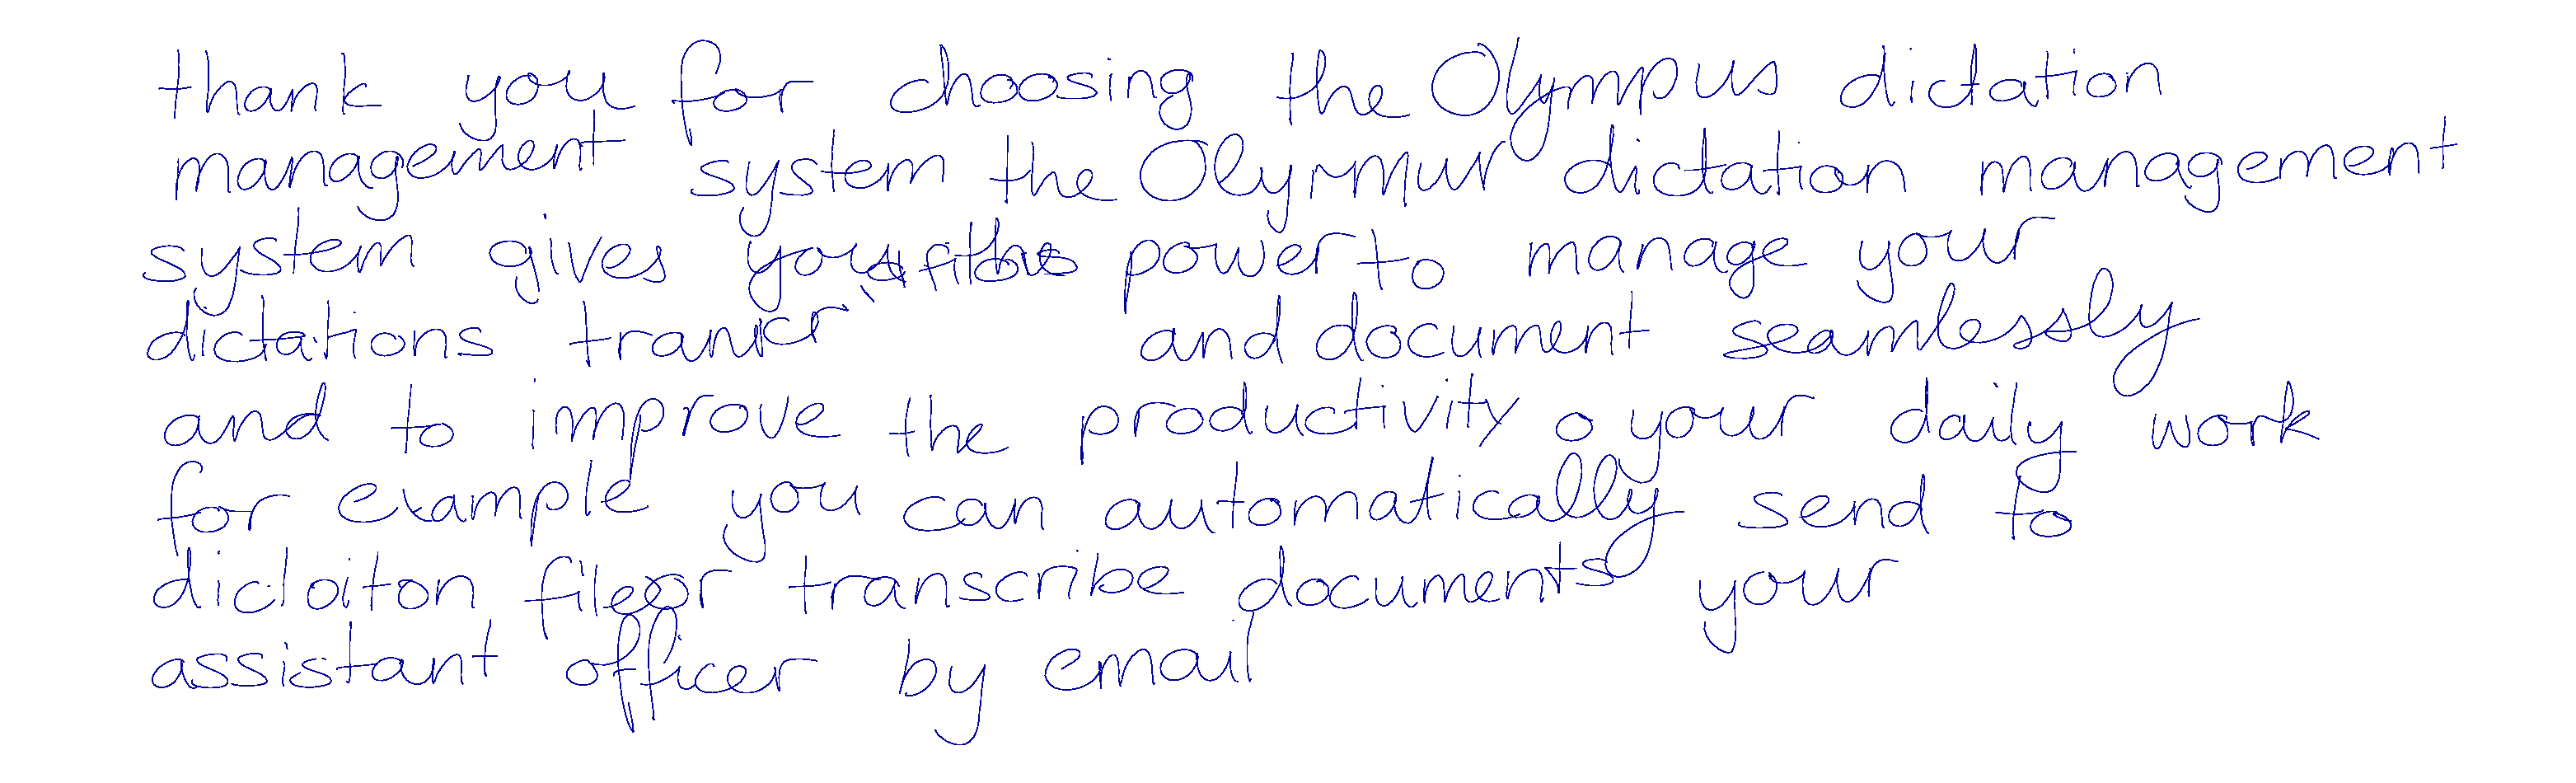 thank you for choosing the Olympus dictation
management system the Olyrmur dictation management
system gives power to manage your
dictations trancr and document seamlessly
and to improve the productivity o your daily work
for example you can automatically send to
dicloiton fileor transcribe documents your
assistant officer by email